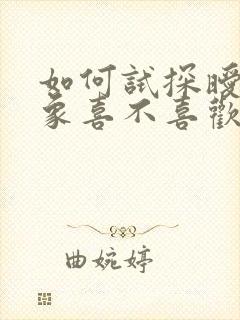 如何試探曖
象喜不喜歡
曲婉婷